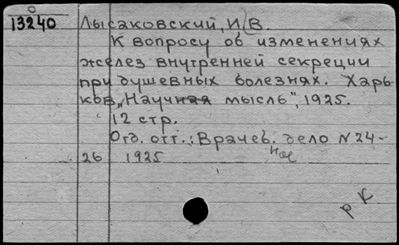 13240 Лысаковский, И. В.
К вопросу об изменениях
желез внутренней секреции
при душевных болезнях. Харь-
ков, "Научная мысль", 1925.
12 стр.
Отд. отт.: Врачев. дело N 24-
26 1925
р К